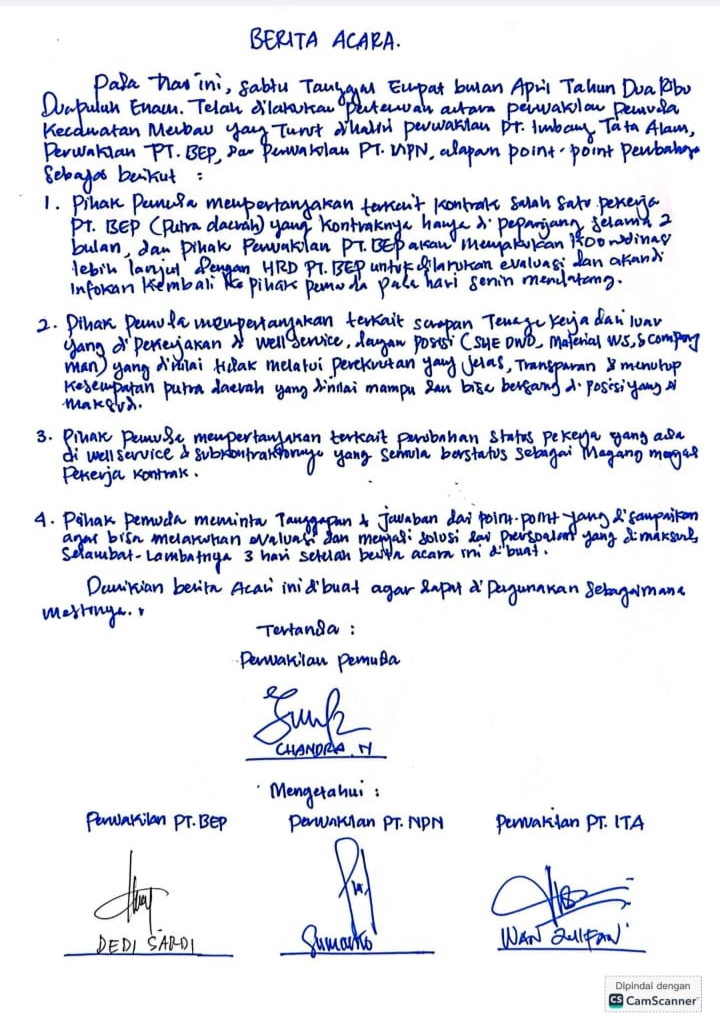 BERITA ACARA.
Pada Hari ini, Sabtu Tanggal Empat bulan April Tahun Dua Ribu
Duapuluh Enam. Telah dilakukan Pertemuan antara perwakilan Pemuda
Kecamatan Merbau yang Turut dihadiri perwakilan PT. Imbang Tata Alam,
Perwakilan PT. BEP, Dan Perwakilan PT. NPN, adapun point-point Pembahasan
Sebagai berikut :
1. Pihak Pemuda mempertanyakan terkait kontrak salah satu pekerja
PT. BEP (Putra daerah) yang kontraknya hanya di perpanjang selama 2
bulan, dan pihak Perwakilan PT. BEP akan melakukan koordinasi
lebih lanjut dengan HRD PT. BEP untuk dilakukan evaluasi dan akan di
Infokan kembali ke pihak pemuda pada hari senin mendatang.
2. Pihak Pemuda mempertanyakan terkait serapan Tenaga kerja dari luar
yang di pekerjakan di well service, dengan posisi (SHE DWO, Material WS, & Company
man) yang dinilai tidak melalui perekrutan yang jelas, Transparan & menutup
kesempatan putra daerah yang dinilai mampu dan bisa bersaing di posisi yang di
maksud.
3. Pihak Pemuda mempertanyakan terkait perubahan status pekerja yang ada
di well service & subkontraktornya yang semula berstatus sebagai Magang menjadi
Pekerja kontrak.
4. Pihak pemuda meminta Tanggapan & jawaban dari point-point yang disampaikan
agar bisa melakukan evaluasi dan menjadi solusi dari persoalan yang dimaksud,
Selambat-Lambatnya 3 hari setelah berita acara ini dibuat.
Demikian berita Acara ini dibuat agar dapat di pergunakan Sebagaimana
mestinya.
Tertanda :
Perwakilan Pemuda
CHANDRA. N
Mengetahui :
Perwakilan PT. BEP Perwakilan PT. NPN Perwakilan PT. ITA
DEDI SARDI Sumarko WAN ZULIFAN
Dipindai dengan
CS CamScanner